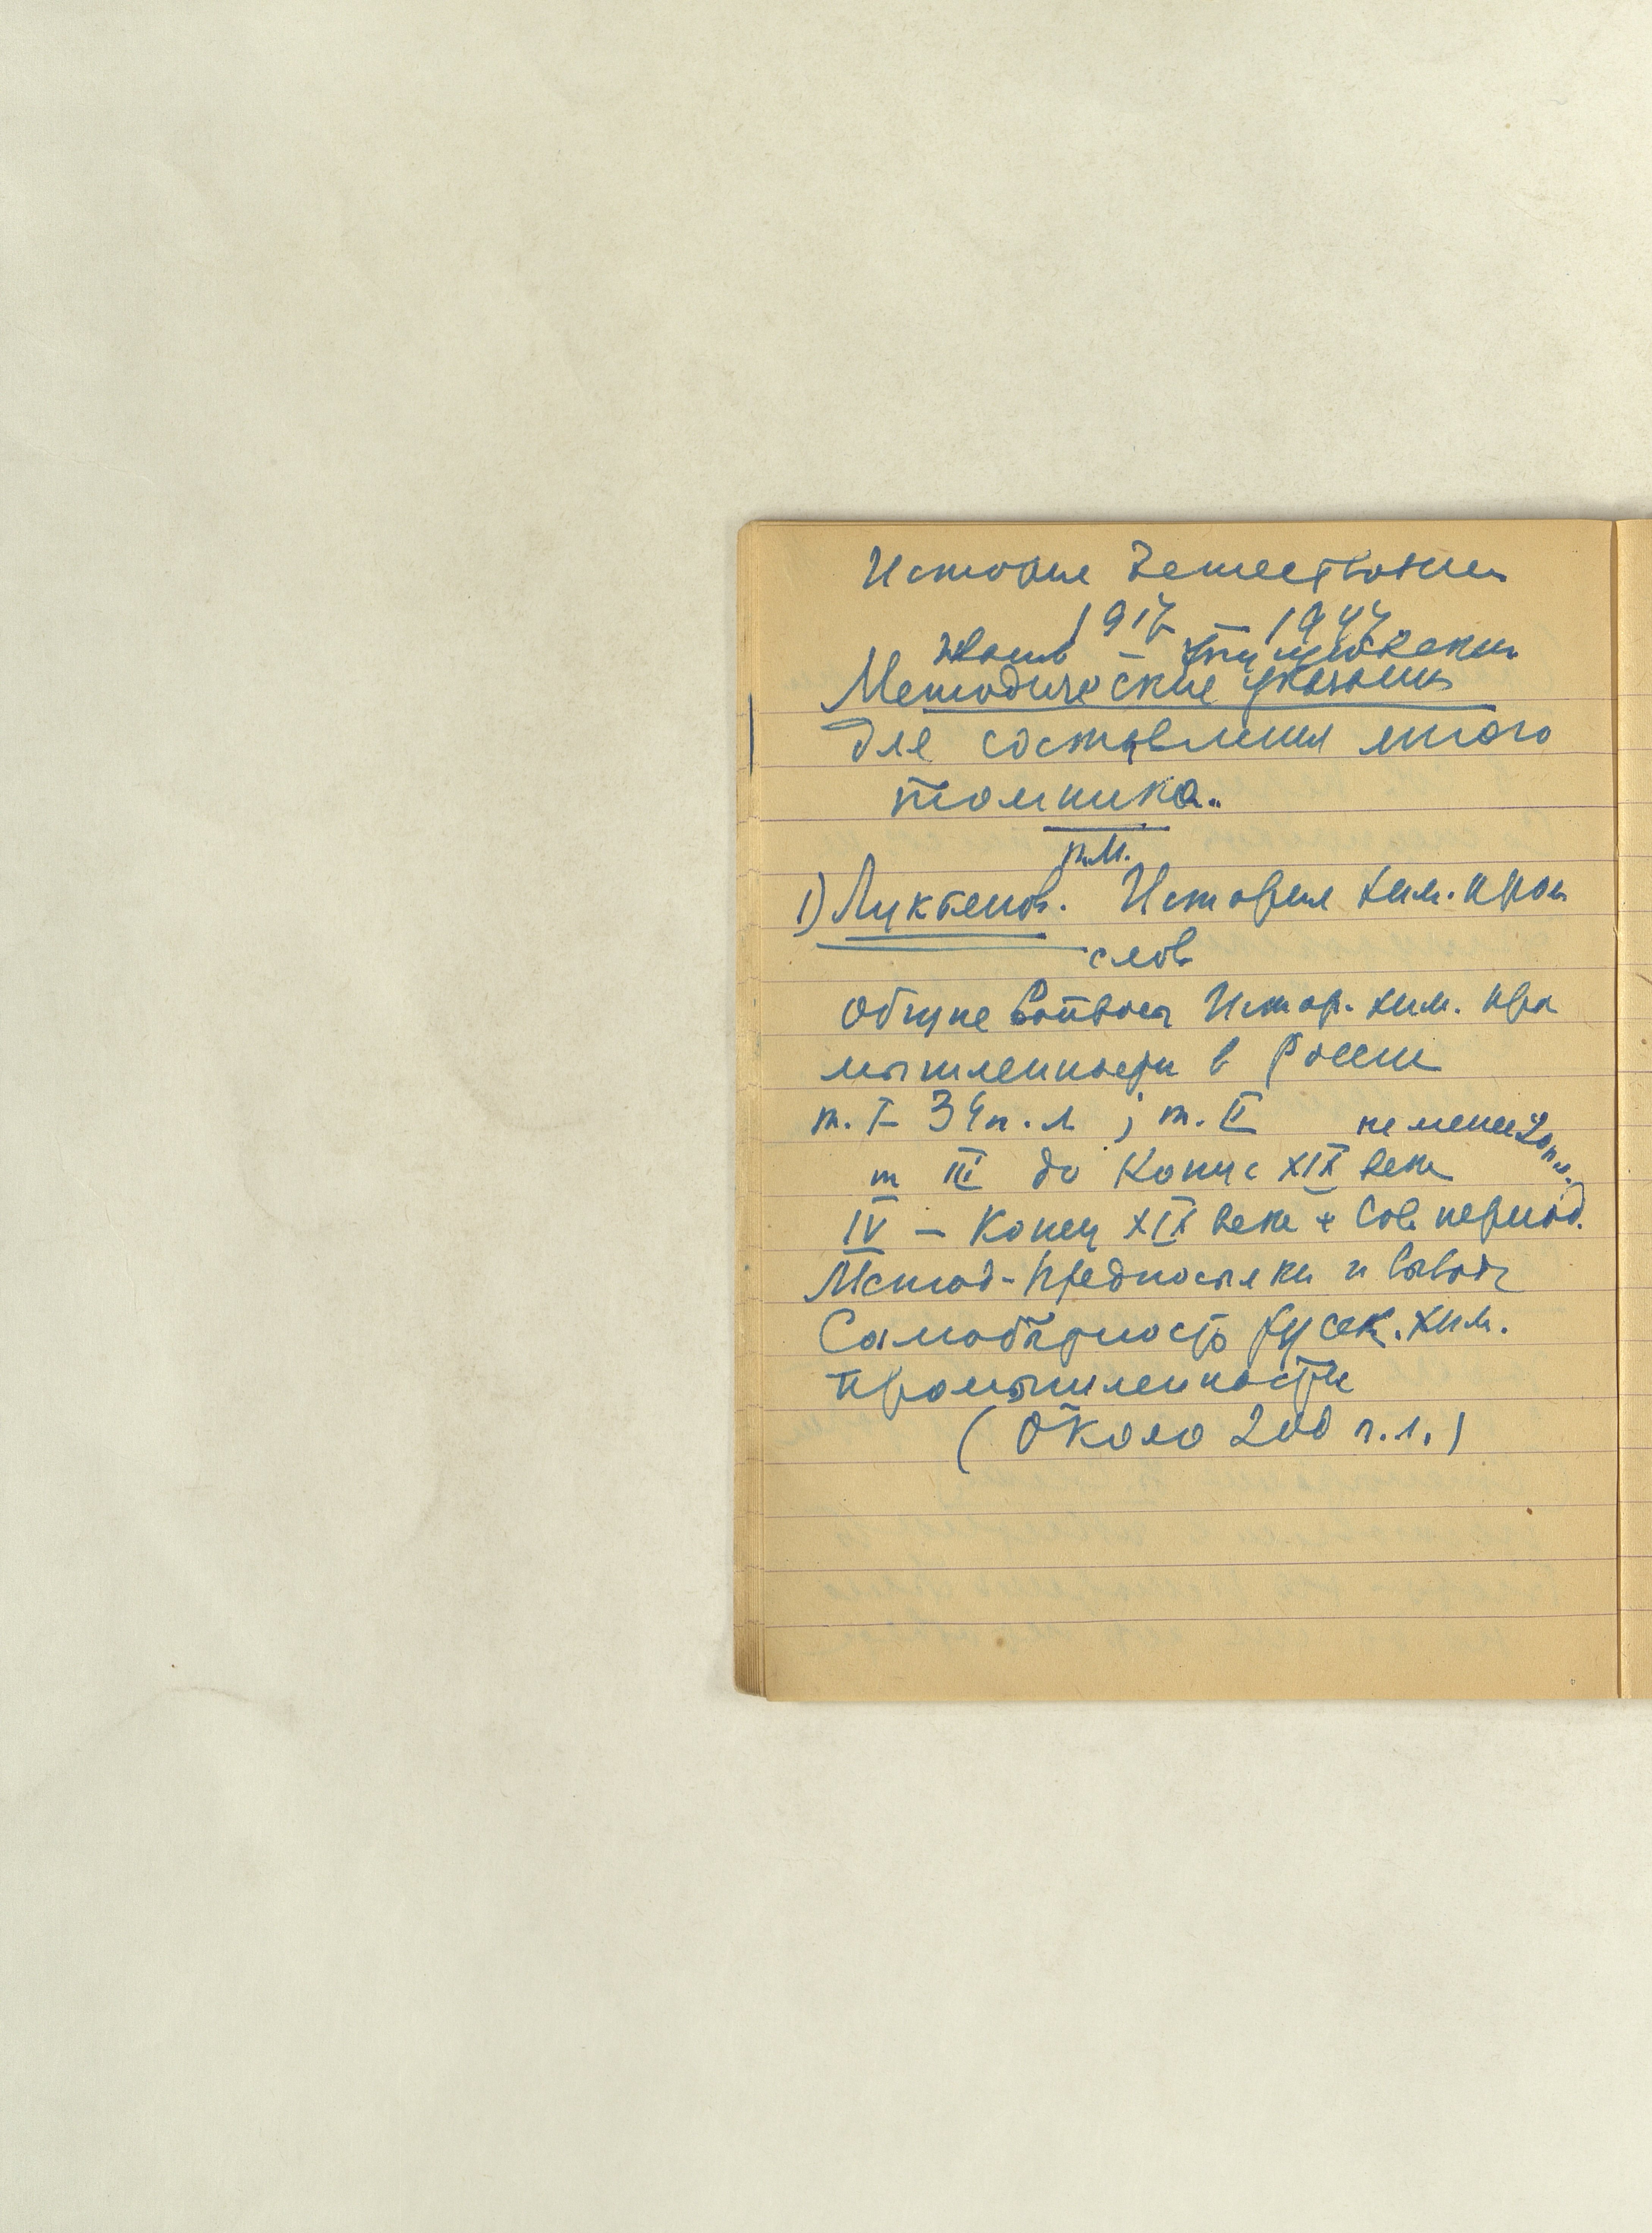 История Естествознания
1917 – 1947
Методические указания
для составления много
томника.
п.М.
1) Лукьянов. История хим. промы
слов
Общие вопросы Истор. хим. про
мышленности в России
т. I – 34 п. л ; т. II не менее 20 п.л.
т III до Конца XIX века
IV – Конец XIX века + Сов. период.
Метод-предпосылки и выводы
Самобытность русск. хим.
промышленности
(Около 200 п.л.)